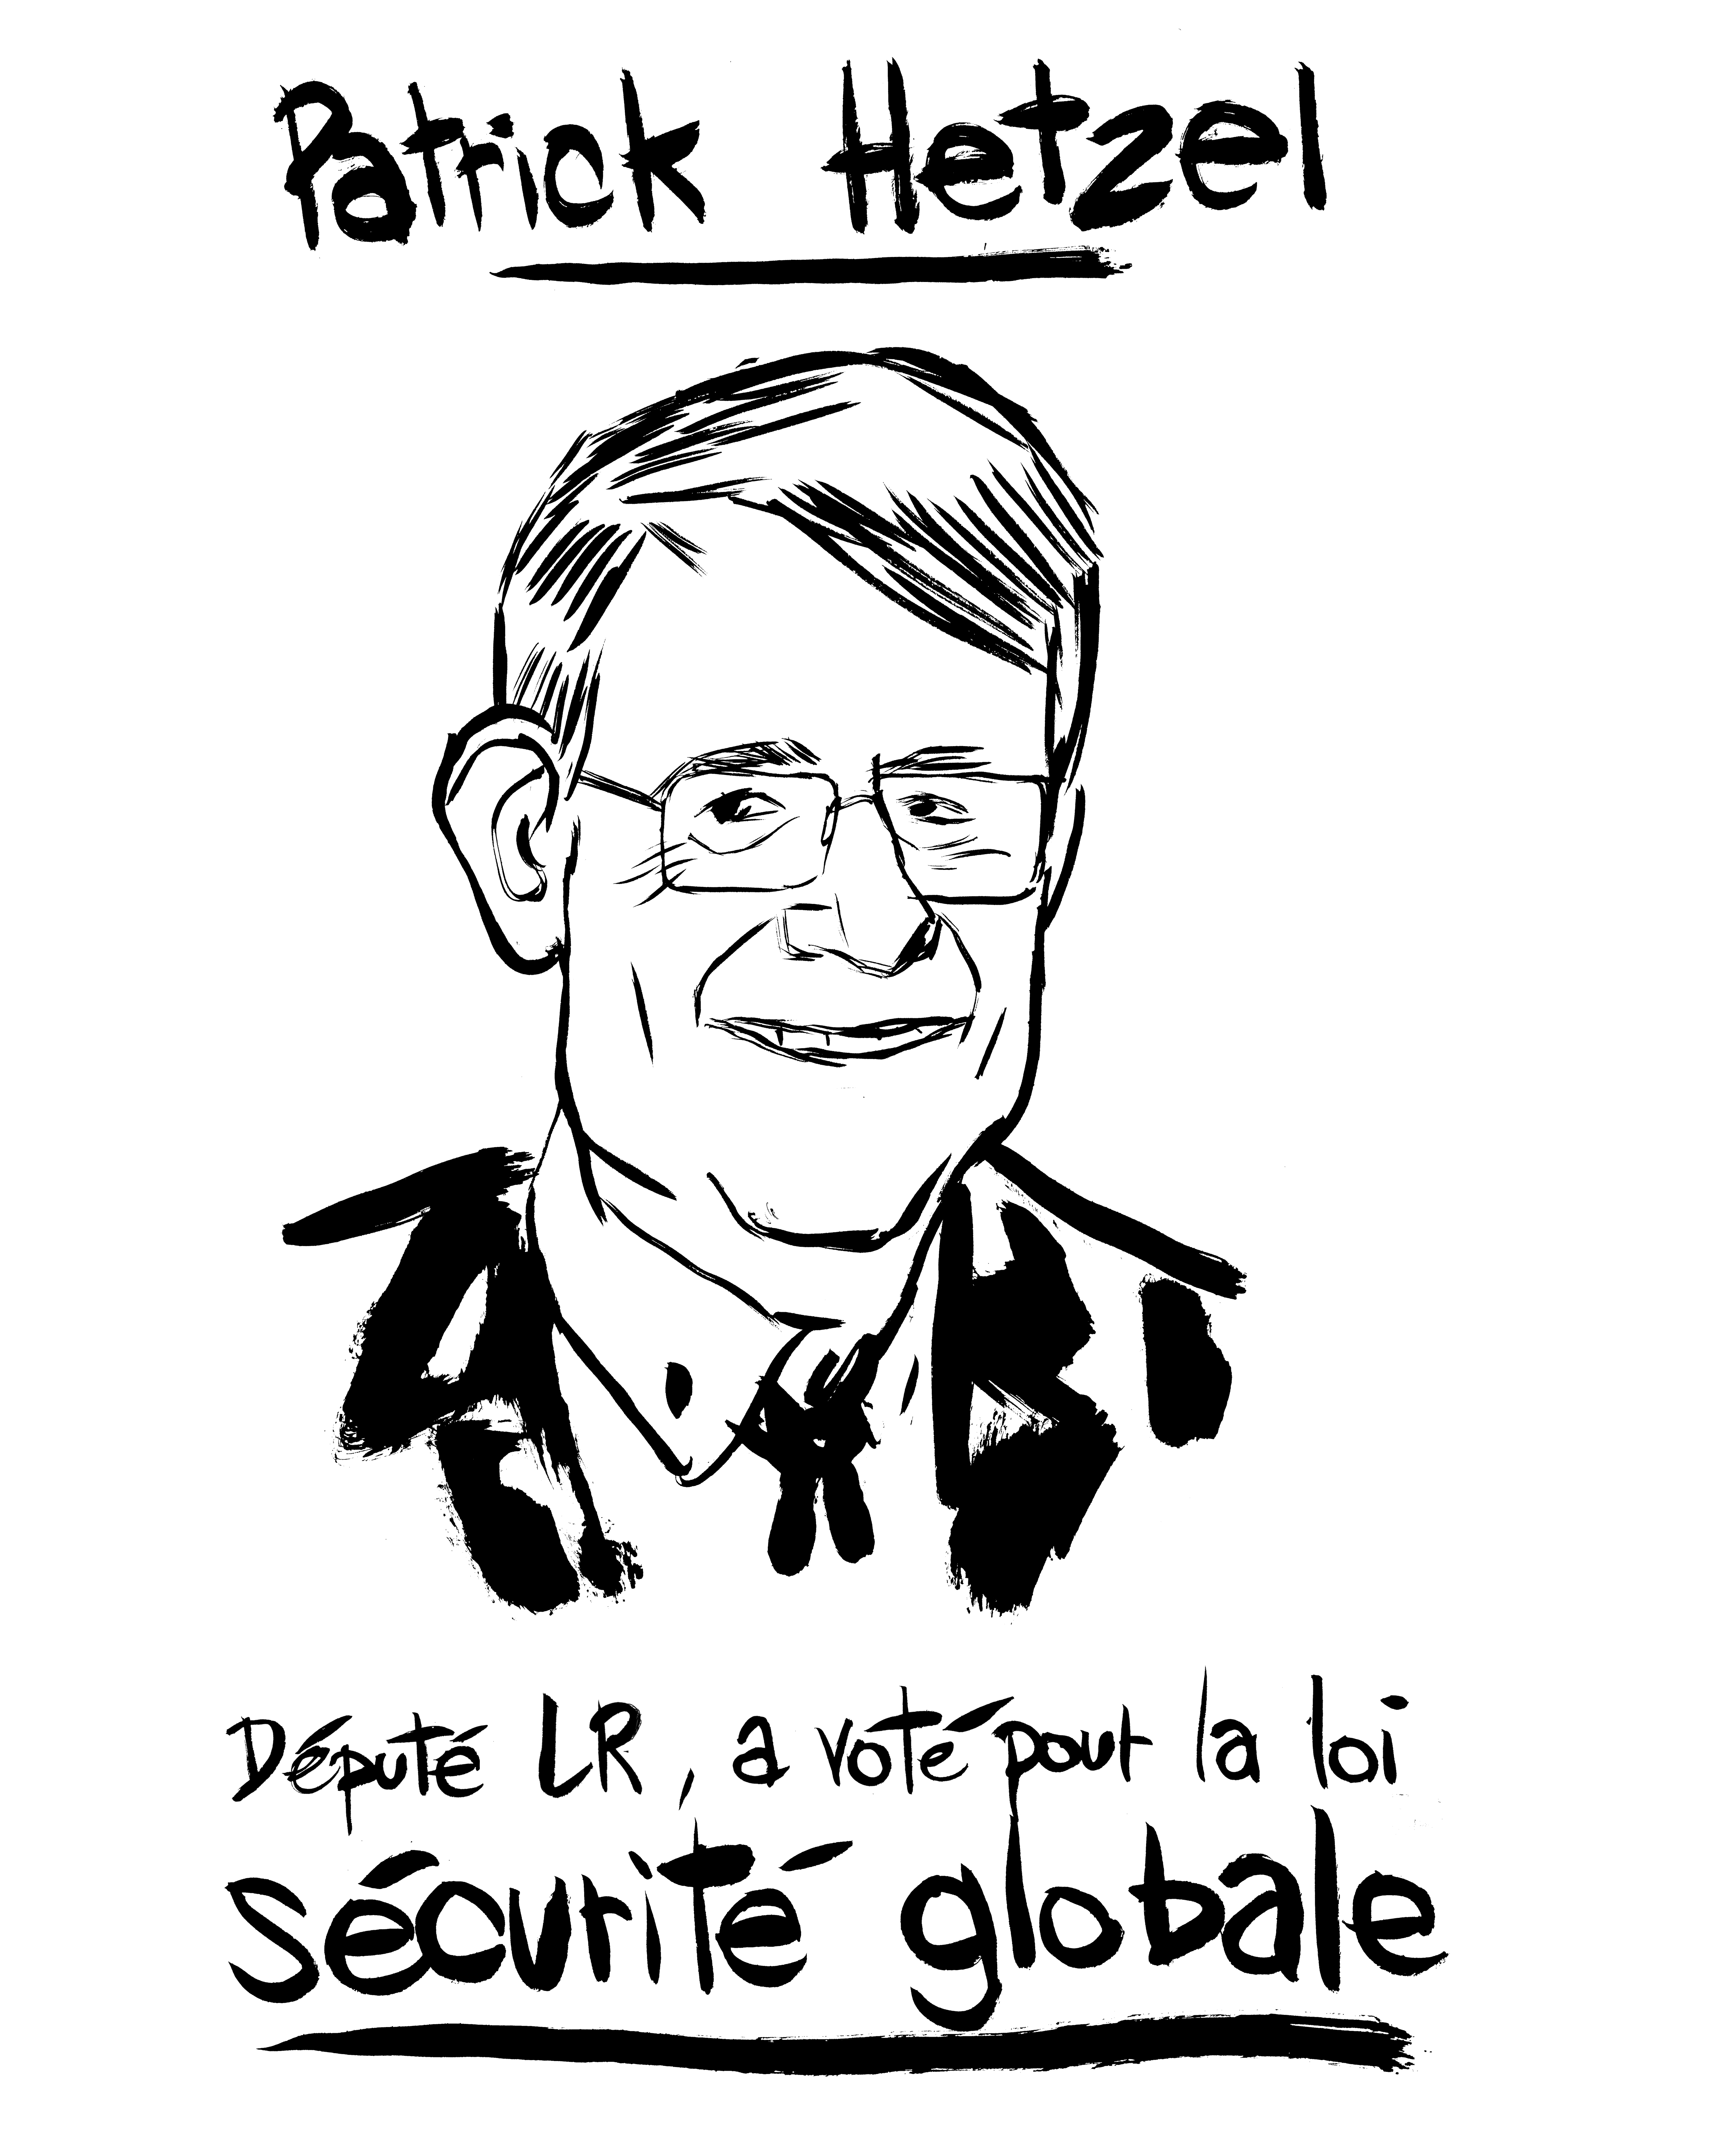 Patrick Hetzel
Député LR, a voté pour la loi
sécurité globale